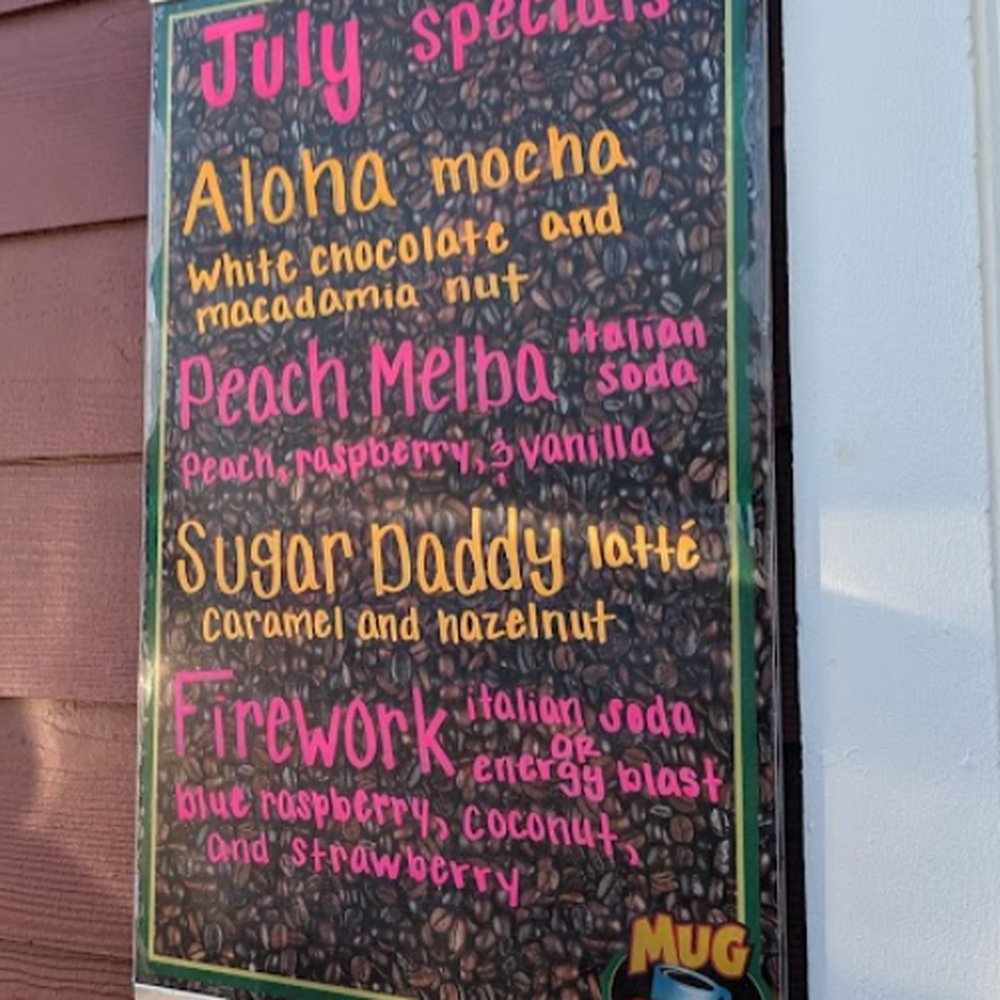 July specials
Aloha mocha
White chocolate and
macadamia nut
Peach Melba italian
soda
Peach, raspberry, & vanilla
Sugar Daddy latté
Caramel and hazelnut
Firework italian soda
OR
energy blast
blue raspberry, coconut,
and strawberry
MUG